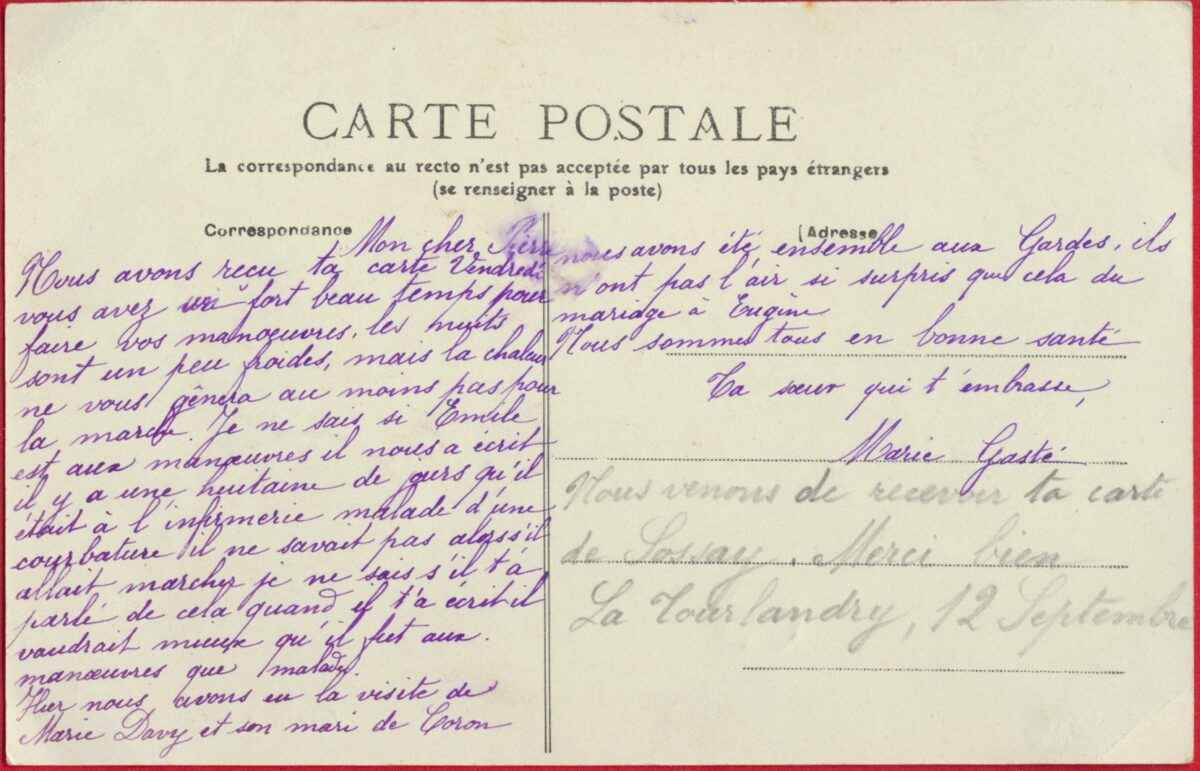 CARTE POSTALE
La correspondance au recto n'est pas acceptée par tous les pays étrangers
(se renseigner à la poste)
Correspondance
Mon cher Pierre
Nous avons reçu ta carte Vendredi
vous avez un fort beau temps pour
faire vos manœuvres, les nuits
sont un peu froides, mais la chaleur
ne vous gênera au moins pas pour
la marche. Je ne sais si Emile
est aux manœuvres il nous a écrit
il y a une huitaine de jours qu'il
était à l'infirmerie malade d'une
courbature il ne savait pas alors s'il
allait marcher je ne sais s'il t'a
parlé de cela quand il t'a écrit il
vaudrait mieux qu'il fut aux
manœuvres que malade.
Hier nous avons eu la visite de
Marie Davy et son mari de Coron
Adresse
nous avons été ensemble aux Gardes, ils
n'ont pas l'air si surpris que cela du
mariage à Eugène
Nous sommes tous en bonne santé
Ta sœur qui t'embrasse,
Marie Gasté
Nous venons de recevoir ta carte
de Sossay. Merci bien
La Tourlandry, 12 Septembre